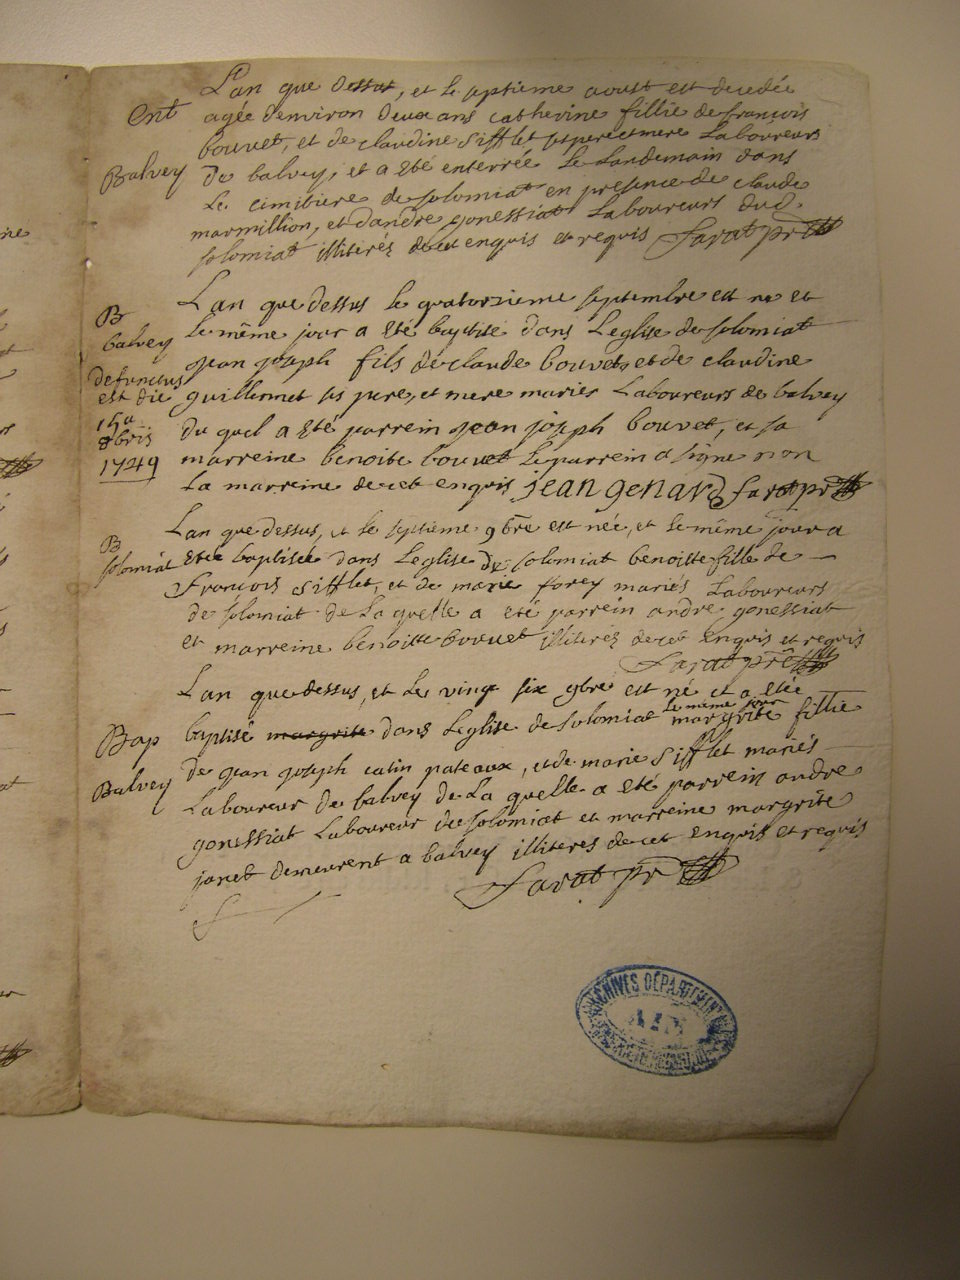 Ent
Balvey
L'an que dessus, et le septieme aoust est decedée
agée denviron deux ans catherine fillie de françois
bouvet, et de claudine Sifflet ses pere et mere Laboureurs
de balvey, et a été enterrée le Landemain dans
Le cimitiere de solomiat en presence de claude
marmillion, et d'andre gonessiat Laboureurs dud.
solomiat illiterés de cet enquis et requis Farat ptre
B
balvey
defunctus
est die
15a
8bris
1749
L'an que dessus le quatorzieme septembre est ne et
le même jour a été baptisé dans L'eglise de solomiat
jean joseph fils de claude bouvet, et de claudine
guillermet ses pere, et mere mariés Laboureurs de balvey
du quel a été parrein jean joseph bouvet, et sa
marreine benoite bouvet le parrein a signe non
La marreine de cet enquis jean genard farat ptre
B
solomiat
L'an que dessus, et le septieme 9bre est née, et le même jour a
étée baptisée dans L'eglise De solomiat benoitte fille de
François Sifflet, et de marie forey mariés Laboureurs
de solomiat de La quelle a eté parrein andre gonessiat
et marreine benoitte bouvet illiterés de cet enquis et requis
Farat ptre
Bap
Balvey
L'an que dessus, et Le vingt six 9bre est né et a etée
baptisé margrite dans L'eglise de solomiat le meme jour margrite fillie
de jean joseph catin pateaux, et de marie Sifflet mariés
Laboureur de balvey de La quelle a eté parrein andre
gonessiat Laboureur de solomiat et marreine margrite
janet demeurent a balvey illiteres de cet enquis et requis
Farat ptre
ARCHIVES DÉPARTEMENTALES
AIN